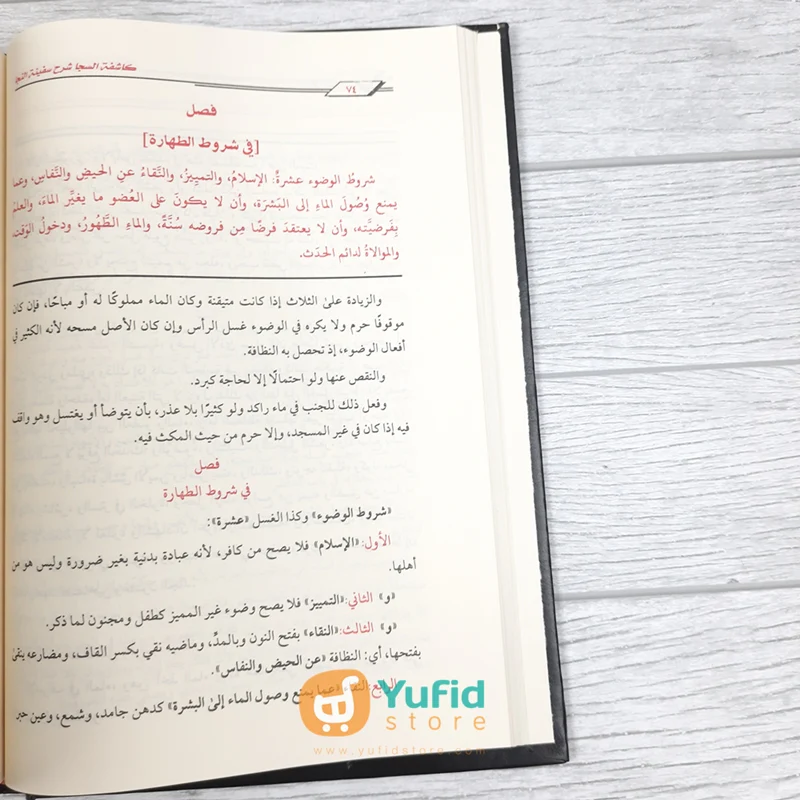 كاشفة السجا شرح سفينة النجا
٧٤
فصل
[في شروط الطهارة]
شروطُ الوضوء عشرةٌ: الإسلامُ، والتمييزُ، والنَّقاءُ عنِ الحَيضِ والنَّفاسِ، وعما
يمنع وُصُولَ الماءِ إلى البَشَرَة، وأن لا يكونَ على العُضو ما يغيِّر الماءَ، والعلمُ
بِفَرضيَّته، وأن لا يعتقدَ فرضًا مِن فروضه سُنَّةً، والماءُ الطَّهُورُ، ودخولُ الوَقت
والموالاةُ لدائم الحدَث.
والزيادة على الثلاث إذا كانت متيقنة وكان الماء مملوكًا له أو مباحًا، فإن كان
موقوفًا حرم ولا يكره في الوضوء غسل الرأس وإن كان الأصل مسحه لأنه الكثير في
أفعال الوضوء، إذ تحصل به النظافة.
والنقص عنها ولو احتمالًا إلا لحاجة كبرد.
وفعل ذلك للجنب في ماء راكد ولو كثيرًا بلا عذر، بأن يتوضأ أو يغتسل وهو واقف
فيه إذا كان في غير المسجد، وإلا حرم من حيث المكث فيه.
فصل
في شروط الطهارة
«شروط الوضوء» وكذا الغسل «عشرة»:
الأول: «الإسلام» فلا يصح من كافر، لأنه عبادة بدنية بغير ضرورة وليس هو من
أهلها.
«و» الثاني: «التمييز» فلا يصح وضوء غير المميز كطفل ومجنون لما ذكر.
«و» الثالث: «النقاء» بفتح النون وبالمدِّ، وماضيه نقي بكسر القاف، ومضارعه ينقى
بفتحها، أي: النظافة «عن الحيض والنفاس».
الرابع: النقاء «عما يمنع وصول الماء إلى البشرة» كدهن جامد، وشمع، وعين حبر
Yufid
store
www.yufidstore.com